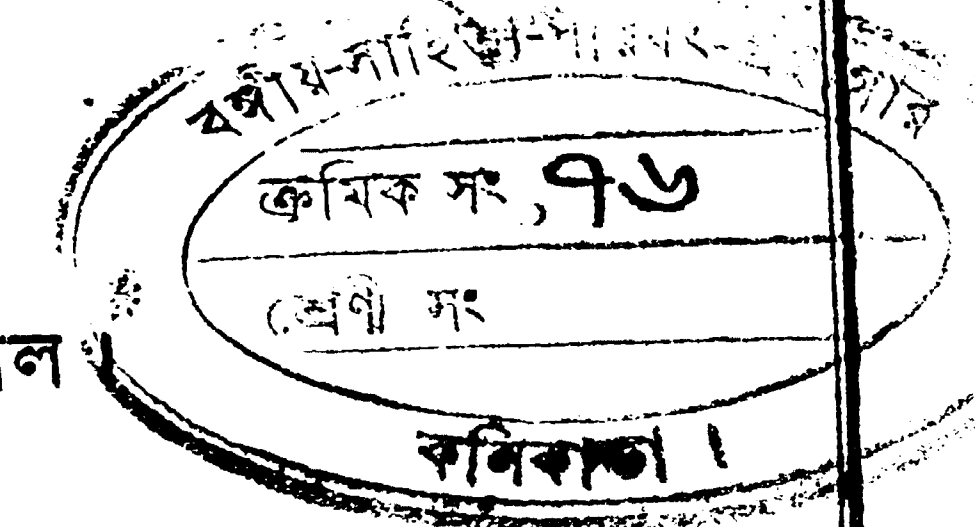 বঙ্গীয়-সাহিত্য-পরিষৎ-
ক্রমিক সং ৭৬
শ্রেণী সং
ল।
কলিকাতা।